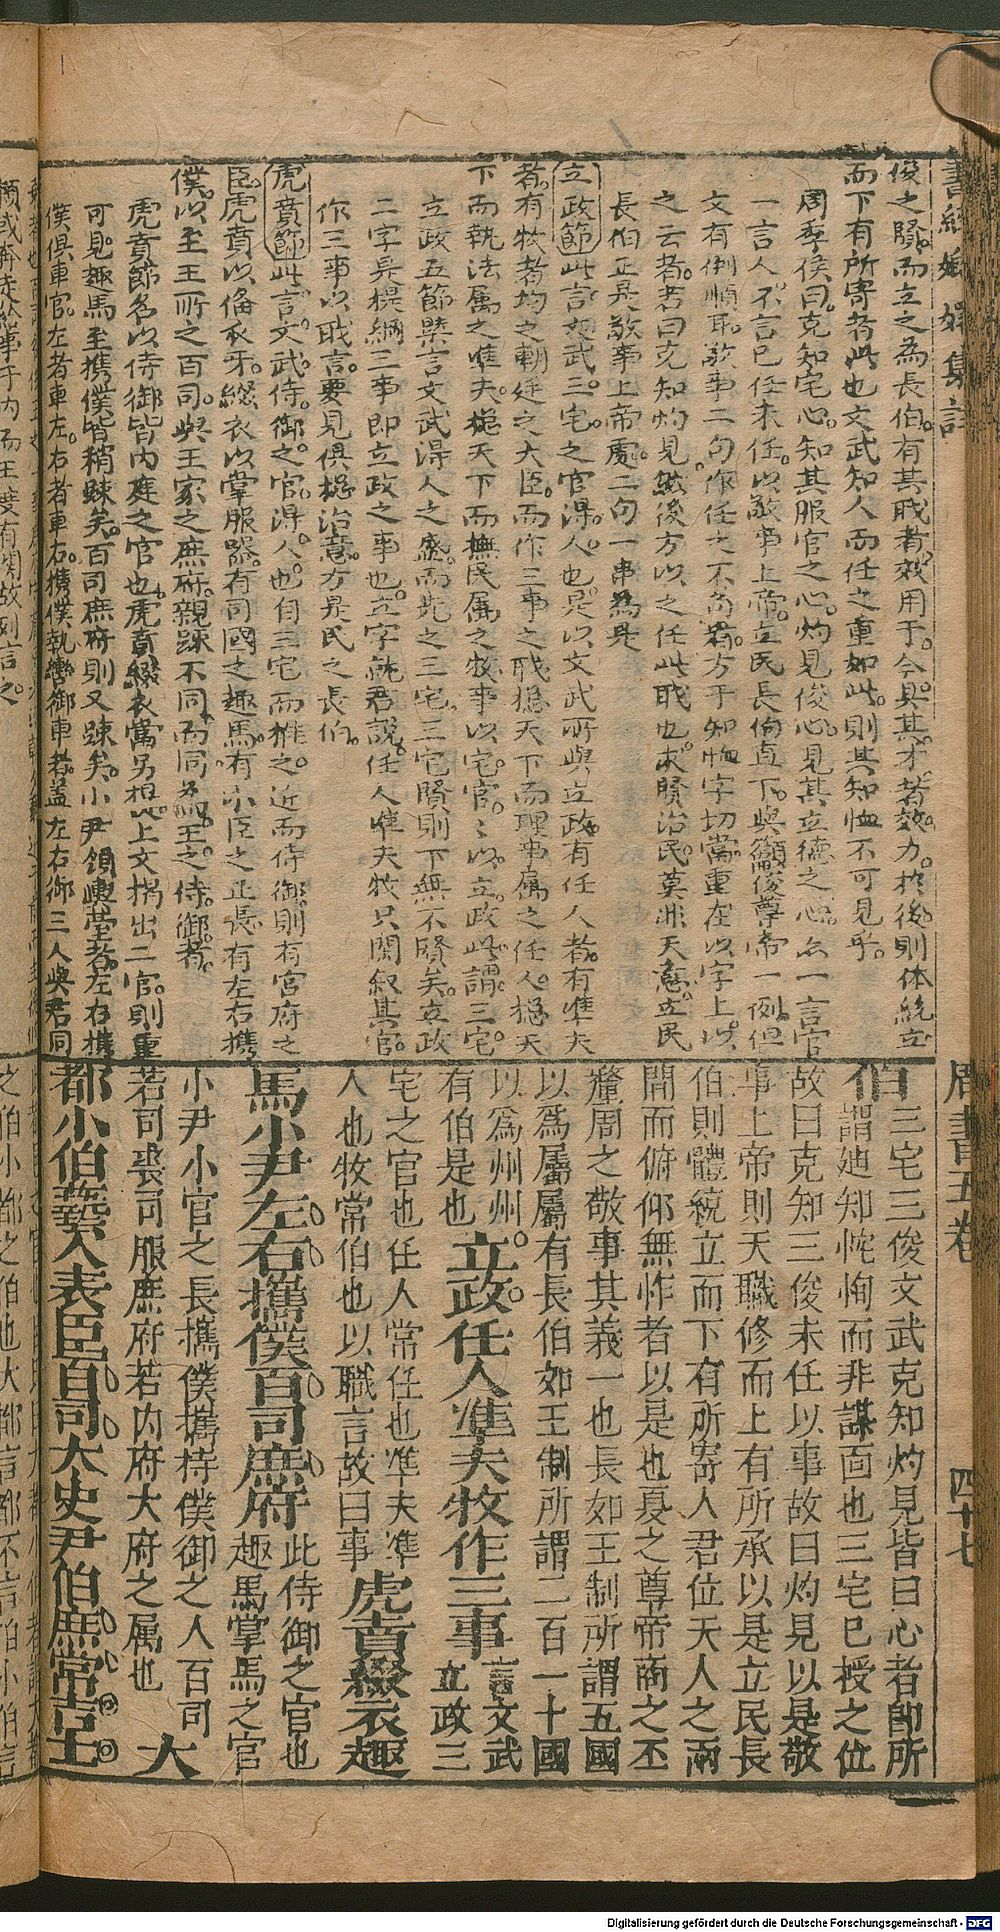 書經嫏嬛集註
周書五卷
四十七
俊之賢而立之為長伯有其戢者效用于今與其才者效力於後則体統立
而下有所寄者此也文武知人而任之重如此則其知恤不可見乎
周季侯曰克知宅心知其服官之心灼見俊心見其立德之心点一言官
一言人不言已任未任以敬事上帝立民長伯直下與籲俊尊帝一例但
文有倒順耳敬事二句作任之不苟看方于知恤字切當重在以字上以
之云者若曰克知灼見然後方以之任此职也求賢治民莫非天意立民
長伯正是敬事上帝處二句一串為是
立政節此言文武三宅之官得人也是以文武所與立政有任人者有準夫
者有牧者均之朝廷之大臣而作三事之职揔天下而理事属之任人揔天
下而執法属之準夫揔天下而撫民属之牧事以宅官々以立政此謂三宅
立政五節槩言文武得人之盛而先之三宅三宅賢則下無不賢矣立政
二字是提綱三事即立政之事也立字就君說任人準夫牧只閒叙其官
作三事以戢言要見俱揔治意方是民之長伯
虎賁節此言文武侍御之官得人也自三宅而推之近而侍御則有宮府之
臣虎賁以俻衣牙綴衣以掌服器有司國之趣馬有小臣之正長有左右携
僕以至王所之百司與王家之庶府親踈不同而同為王之侍御者
虎賁節名以侍御皆內庭之官也虎賁綴衣當另想上文揭出二官則重
可見趣馬至携僕皆稍踈矣百司庶府則又踈矣小尹領輿臺者左右携
僕俱車官左者車左右者車右携僕執轡御車者盖左右御三人與君同
伯三宅三俊文武克知灼見皆曰心者即所
謂迪知忱恂而非謀面也三宅已授之位
故曰克知三俊未任以事故曰灼見以是敬
事上帝則天職修而上有所承以是立民長
伯則體統立而下有所寄人君位天人之兩
間而俯仰無怍者以是也夏之尊帝商之丕
釐周之敬事其義一也長如王制所謂五國
以爲屬屬有長伯如王制所謂二百一十國
以爲州州
有伯是也立政任人準夫牧作三事言文武
立政三
宅之官也任人常任也準夫準
人也牧常伯也以職言故曰事虎賁綴衣趣
馬小尹左右攜僕百司庶府此侍御之官也
趣馬掌馬之官
小尹小官之長攜僕攜持僕御之人百司
若司裘司服庶府若內府大府之属也大
都小伯藝人表臣百司大史尹伯庶常吉士